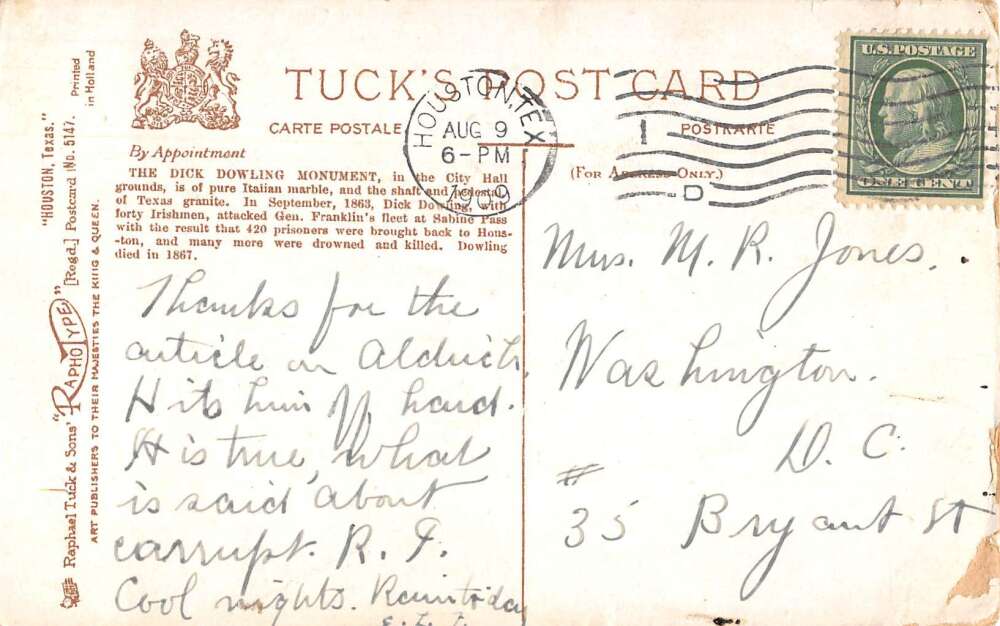 TUCK'S POST CARD
CARTE POSTALE
POSTKARTE
(For Address Only.)
By Appointment
THE DICK DOWLING MONUMENT, in the City Hall
grounds, is of pure Italian marble, and the shaft and pedestal
of Texas granite. In September, 1863, Dick Dowling, with
forty Irishmen, attacked Gen. Franklin's fleet at Sabine Pass
with the result that 420 prisoners were brought back to Hous-
-ton, and many more were drowned and killed. Dowling
died in 1867.
Thanks for the
article on Aldrich.
Hits him hard.
It is true, what
is said about
corrupt. R. I.
Cool nights. Rain to-day
HOUSTON, TEX
AUG 9
6-PM
1909
1
D
U.S. POSTAGE
ONE CENT
Mrs. M. R. Jones.
Washington.
D. C.
# 35 Bryant St
"HOUSTON, Texas."
Printed
in Holland
Raphael Tuck & Sons' "RAPHOTYPE" [Regd.] Postcard No. 5147.
ART PUBLISHERS TO THEIR MAJESTIES THE KING & QUEEN.